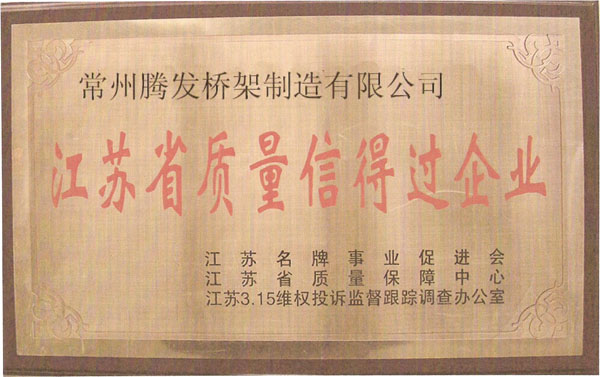 常州腾发桥架制造有限公司
江苏省质量信得过企业
江苏名牌事业促进会
江苏省质量保障中心
江苏3.15维权投诉监督跟踪调查办公室